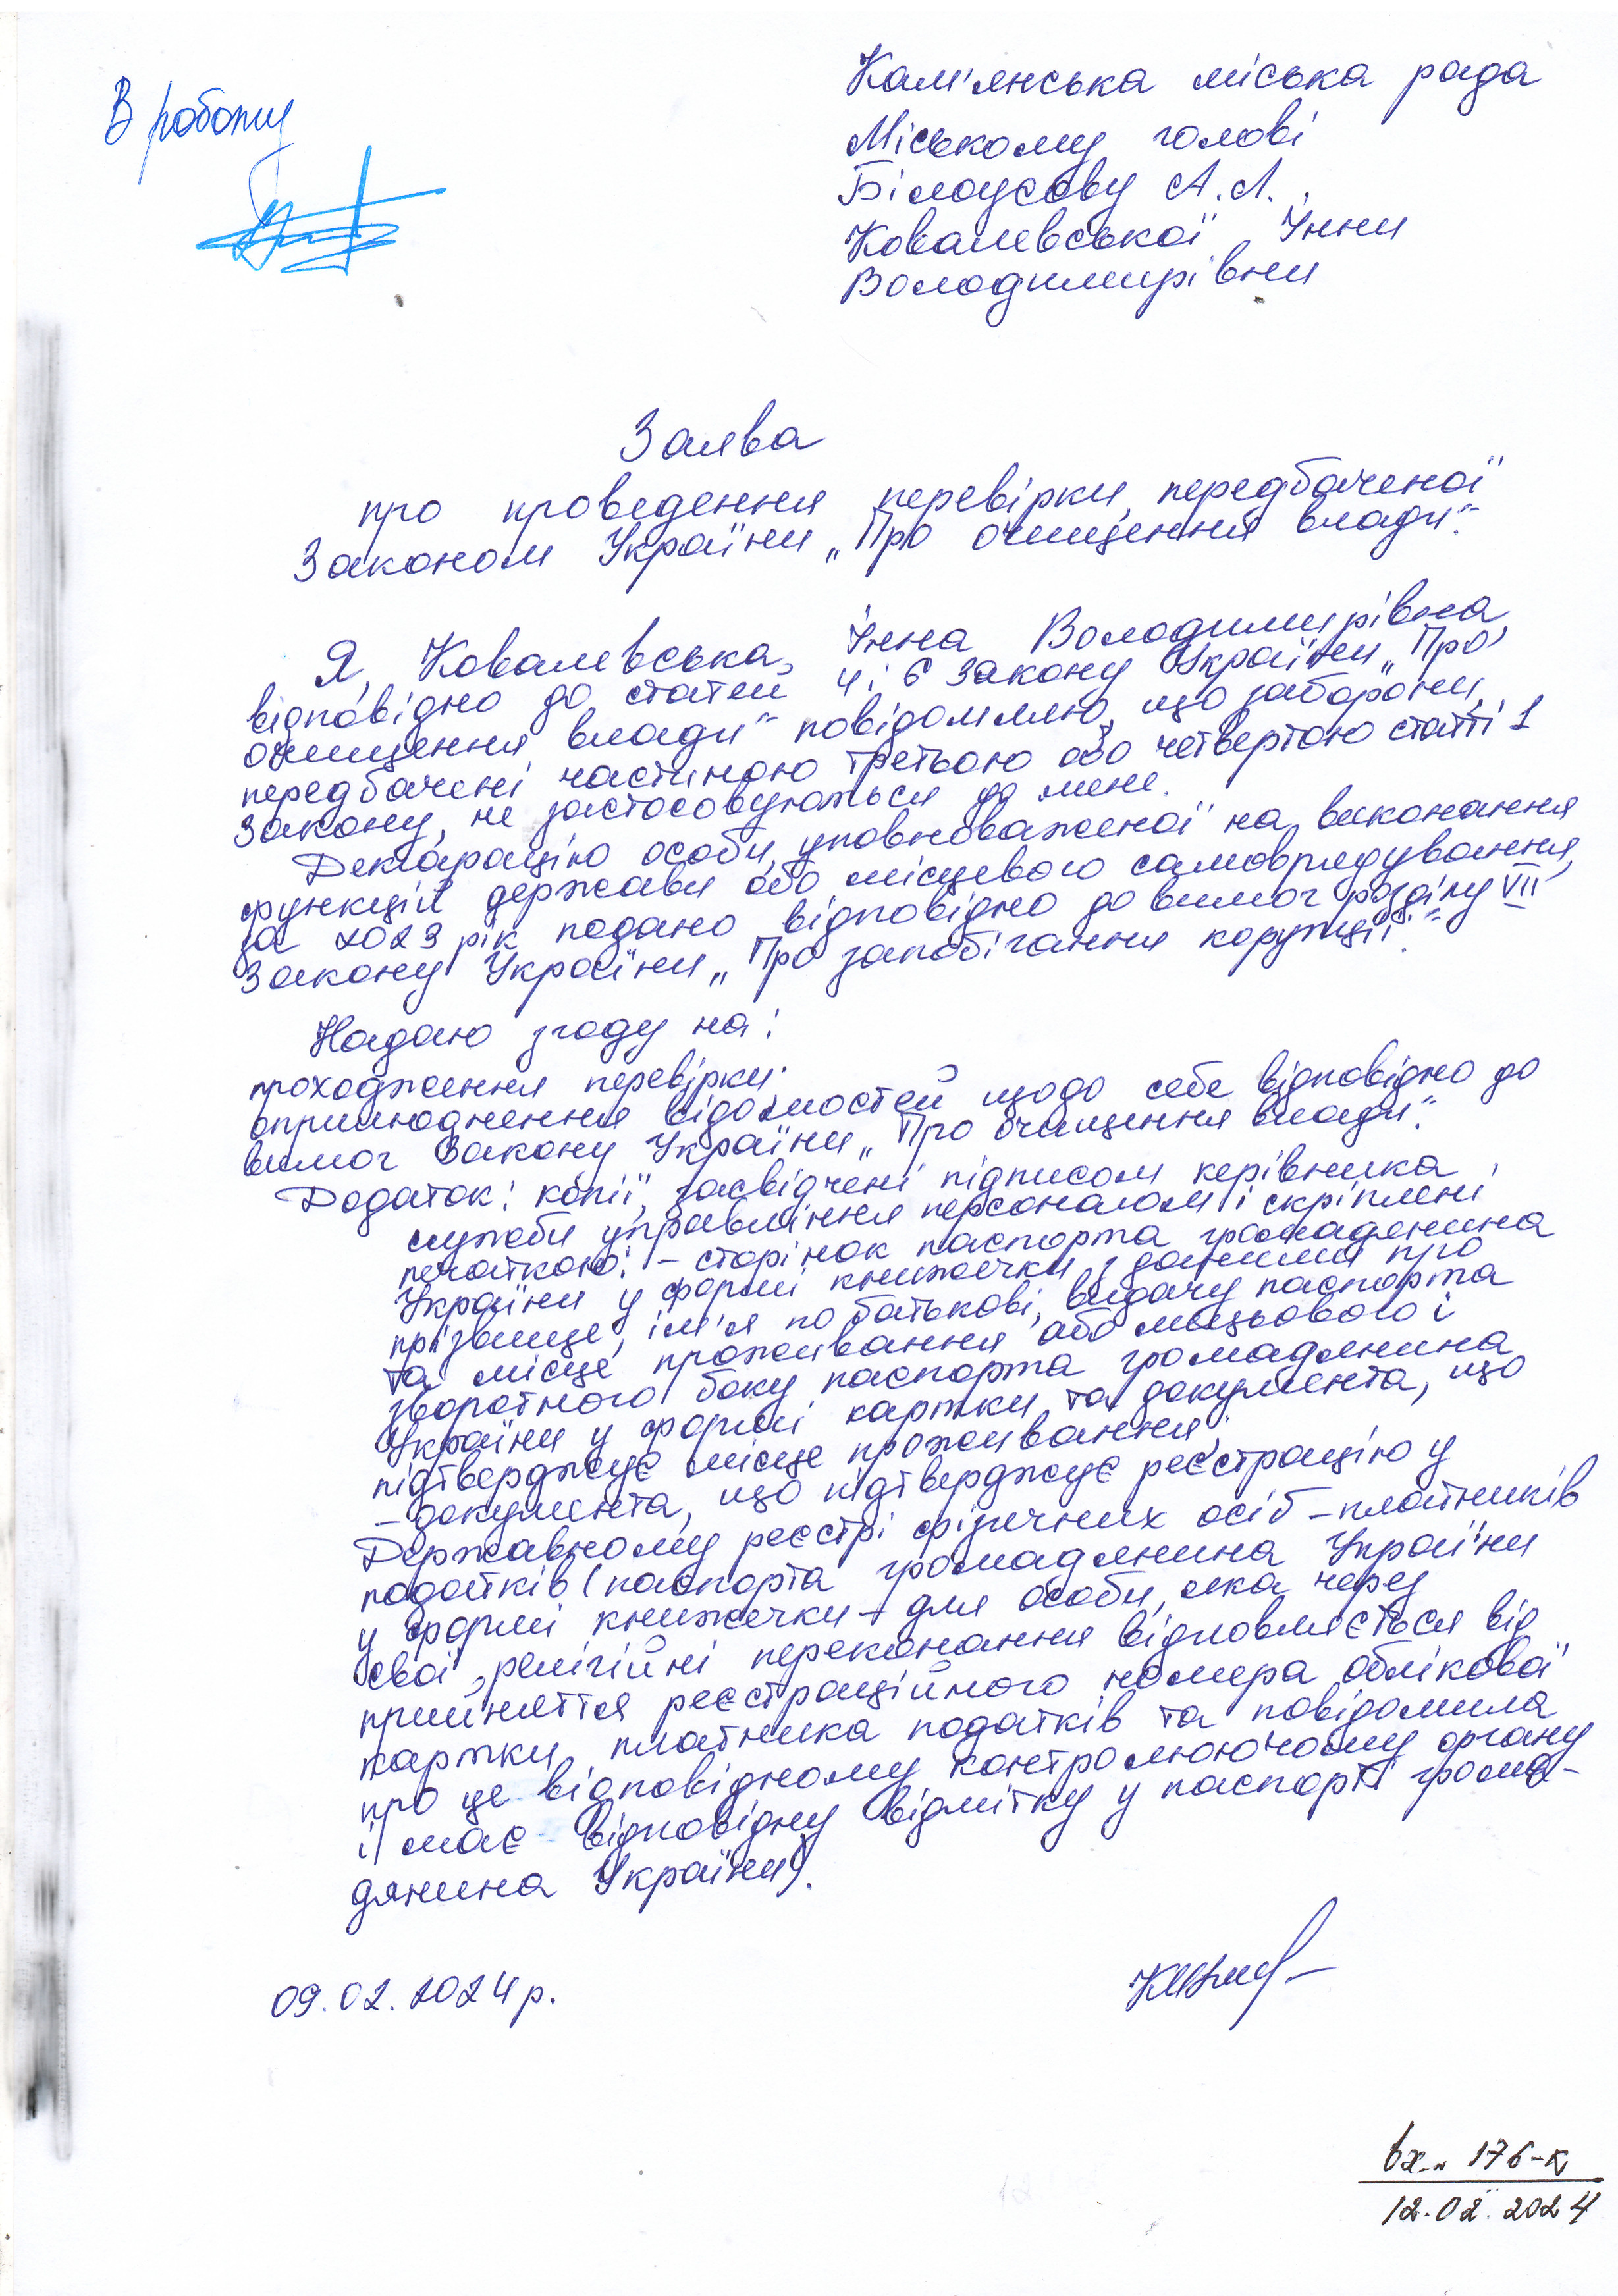 В роботу
Кам'янська міська рада
Міському голові
Білоусову А.Л.
Ковалевської Інни
Володимирівни
Заява
про проведення перевірки, передбаченої
Законом України „Про очищення влади".
Я, Ковалевська Інна Володимирівна,
відповідно до статей 4 і 6 Закону України „Про
очищення влади" повідомляю, що заборони,
передбачені частиною третьою або четвертою статті 1
Закону, не застосовуються до мене.
Декларацію особи, уповноваженої на виконання
функцій держави або місцевого самоврядування,
за 2023 рік подано відповідно до вимог розділу VII
Закону України „Про запобігання корупції".
Надаю згоду на:
проходження перевірки;
оприлюднення відомостей щодо себе відповідно до
вимог Закону України „Про очищення влади".
Додаток: копії, засвідчені підписом керівника
служби управління персоналом і скріплені
печаткою: - сторінок паспорта громадянина
України у формі книжечки з даними про
прізвище, ім'я по батькові, видачу паспорта
та місце проживання або лицьового і
зворотного боку паспорта громадянина
України у формі картки та документа, що
підтверджує місце проживання;
- документа, що підтверджує реєстрацію у
Державному реєстрі фізичних осіб - платників
податків (паспорта громадянина України
у формі книжечки - для особи, яка через
свої релігійні переконання відмовляється від
прийняття реєстраційного номера облікової
картки платника податків та повідомила
про це відповідному контролюючому органу
і має відповідну відмітку у паспорті грома-
дянина України).
09.02.2024 р.
вх. 176-к
12.02.2024